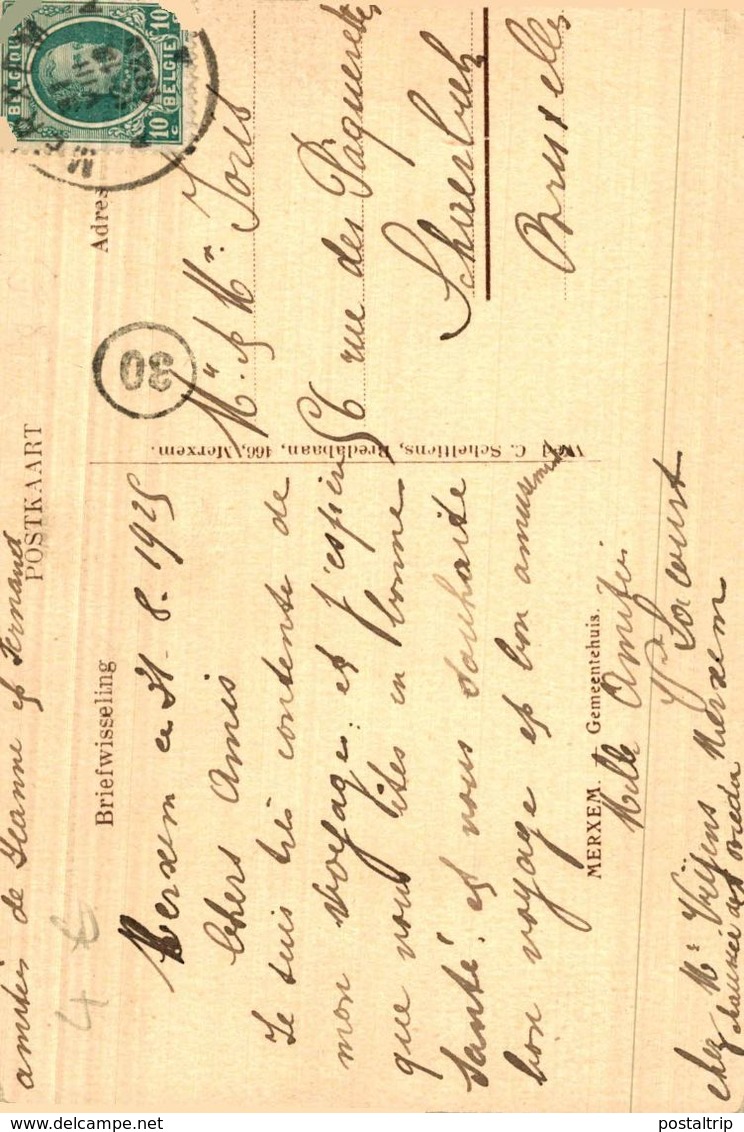 amitiés de Jeanne et Fernand
POSTKAART
Briefwisseling
Adres
4 €
Merxem a 31-8-1925
Chers Amis
Je suis très contente de
mon voyage. et j'espère
que vous êtes en bonne
santé. et vous souhaite
bon voyage et bon amusement
MERXEM. — Gemeentehuis.
Mille Amitiés
Lacourt
chez Mr Vrijens Merxem
chaussée de Breda
Wed C. Scheltiens, Bredabaan, 466, Merxem.
30
Mr & Mr. Joris
56 rue des Paquerettes
Schaerbeek
Bruxelles
BELGIQUE
BELGIE
10 c 10
MERXEM
postaltrip